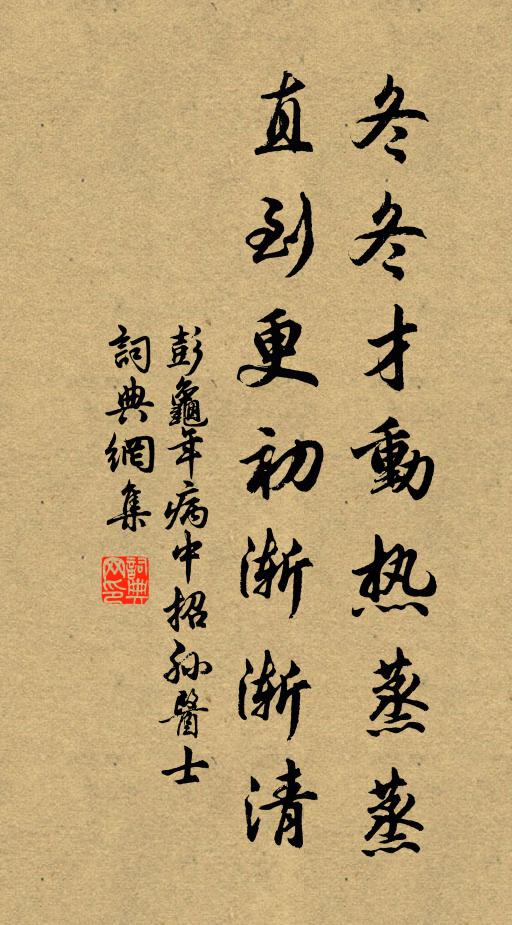 冬冬才動热蒸蒸
直到更初渐渐清
彭龜年病中招孙醫士
詞典網集
詞典网印